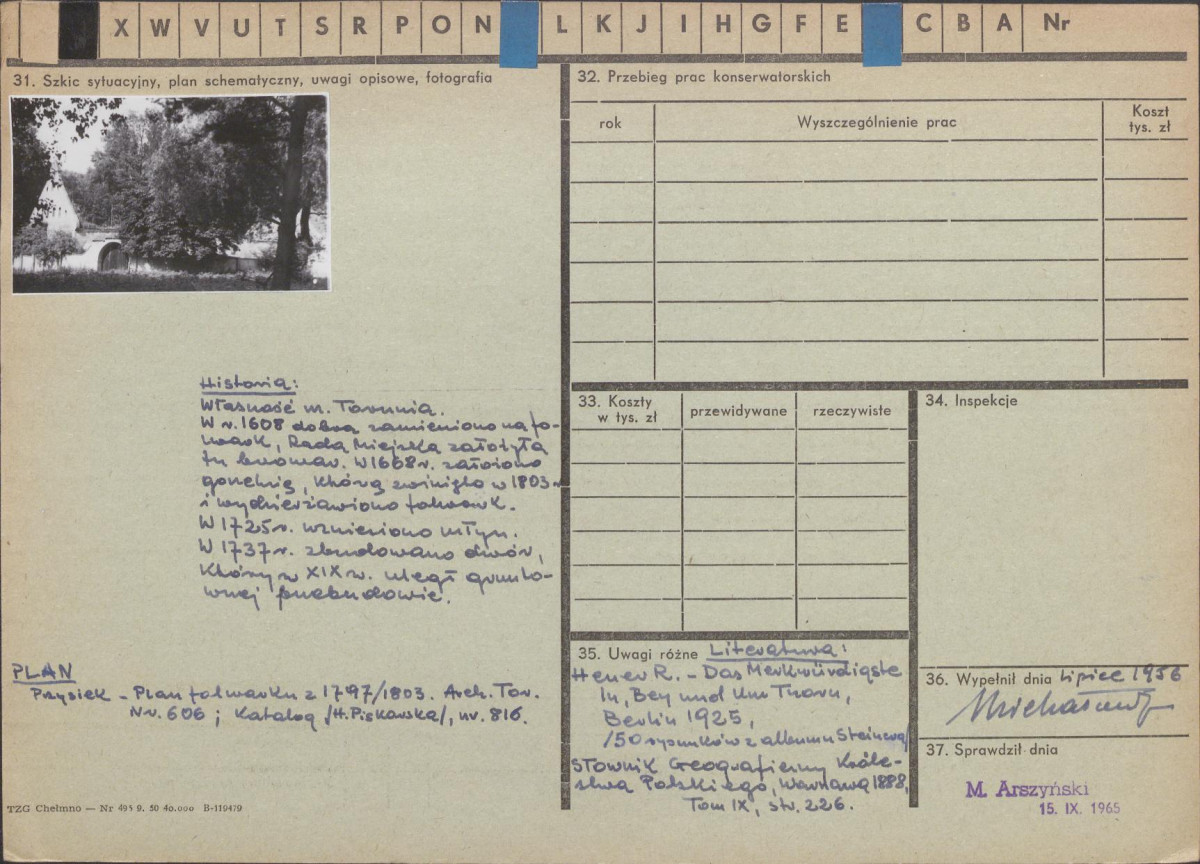 X W V U T S R P O N L K J I H G F E C B A Nr
31. Szkic sytuacyjny, plan schematyczny, uwagi opisowe, fotografia
Historia:
Własność m. Torunia.
W r. 1608 dobra zamieniono na fo-
lwark, Rada Miejska założyła
tu browar. W 1668 r. założono
gorzelnię, którą zwinięto w 1803 r
i wydzierżawiono folwark.
W 1725 r. wzniesiono młyn.
W 1737 r. zbudowano dwór,
który w XIX w. uległ grunto-
wnej przebudowie.
PLAN
Przysiek - Plan folwarku z 1797/1803. Arch. Tor.
Nr. 606; Katalog /H. Piskorska/, nr. 816.
TZG Chełmno — Nr 493 9. 50 40.000 B-119479
32. Przebieg prac konserwatorskich
rok
Wyszczególnienie prac
Koszt
tys. zł
33. Koszty
w tys. zł
przewidywane
rzeczywiste
34. Inspekcje
35. Uwagi różne Literatura:
Heuer R. - Das Merkwürdigste
In, Bey und Um Thorn,
Berlin 1925,
/50 rysunków z albumu Steinera/
Słownik Geograficzny Króle-
stwa Polskiego, Warszawa 1888,
Tom IX, str. 226.
36. Wypełnił dnia lipiec 1956
37. Sprawdził dnia
M. Arszyński
15. IX. 1965